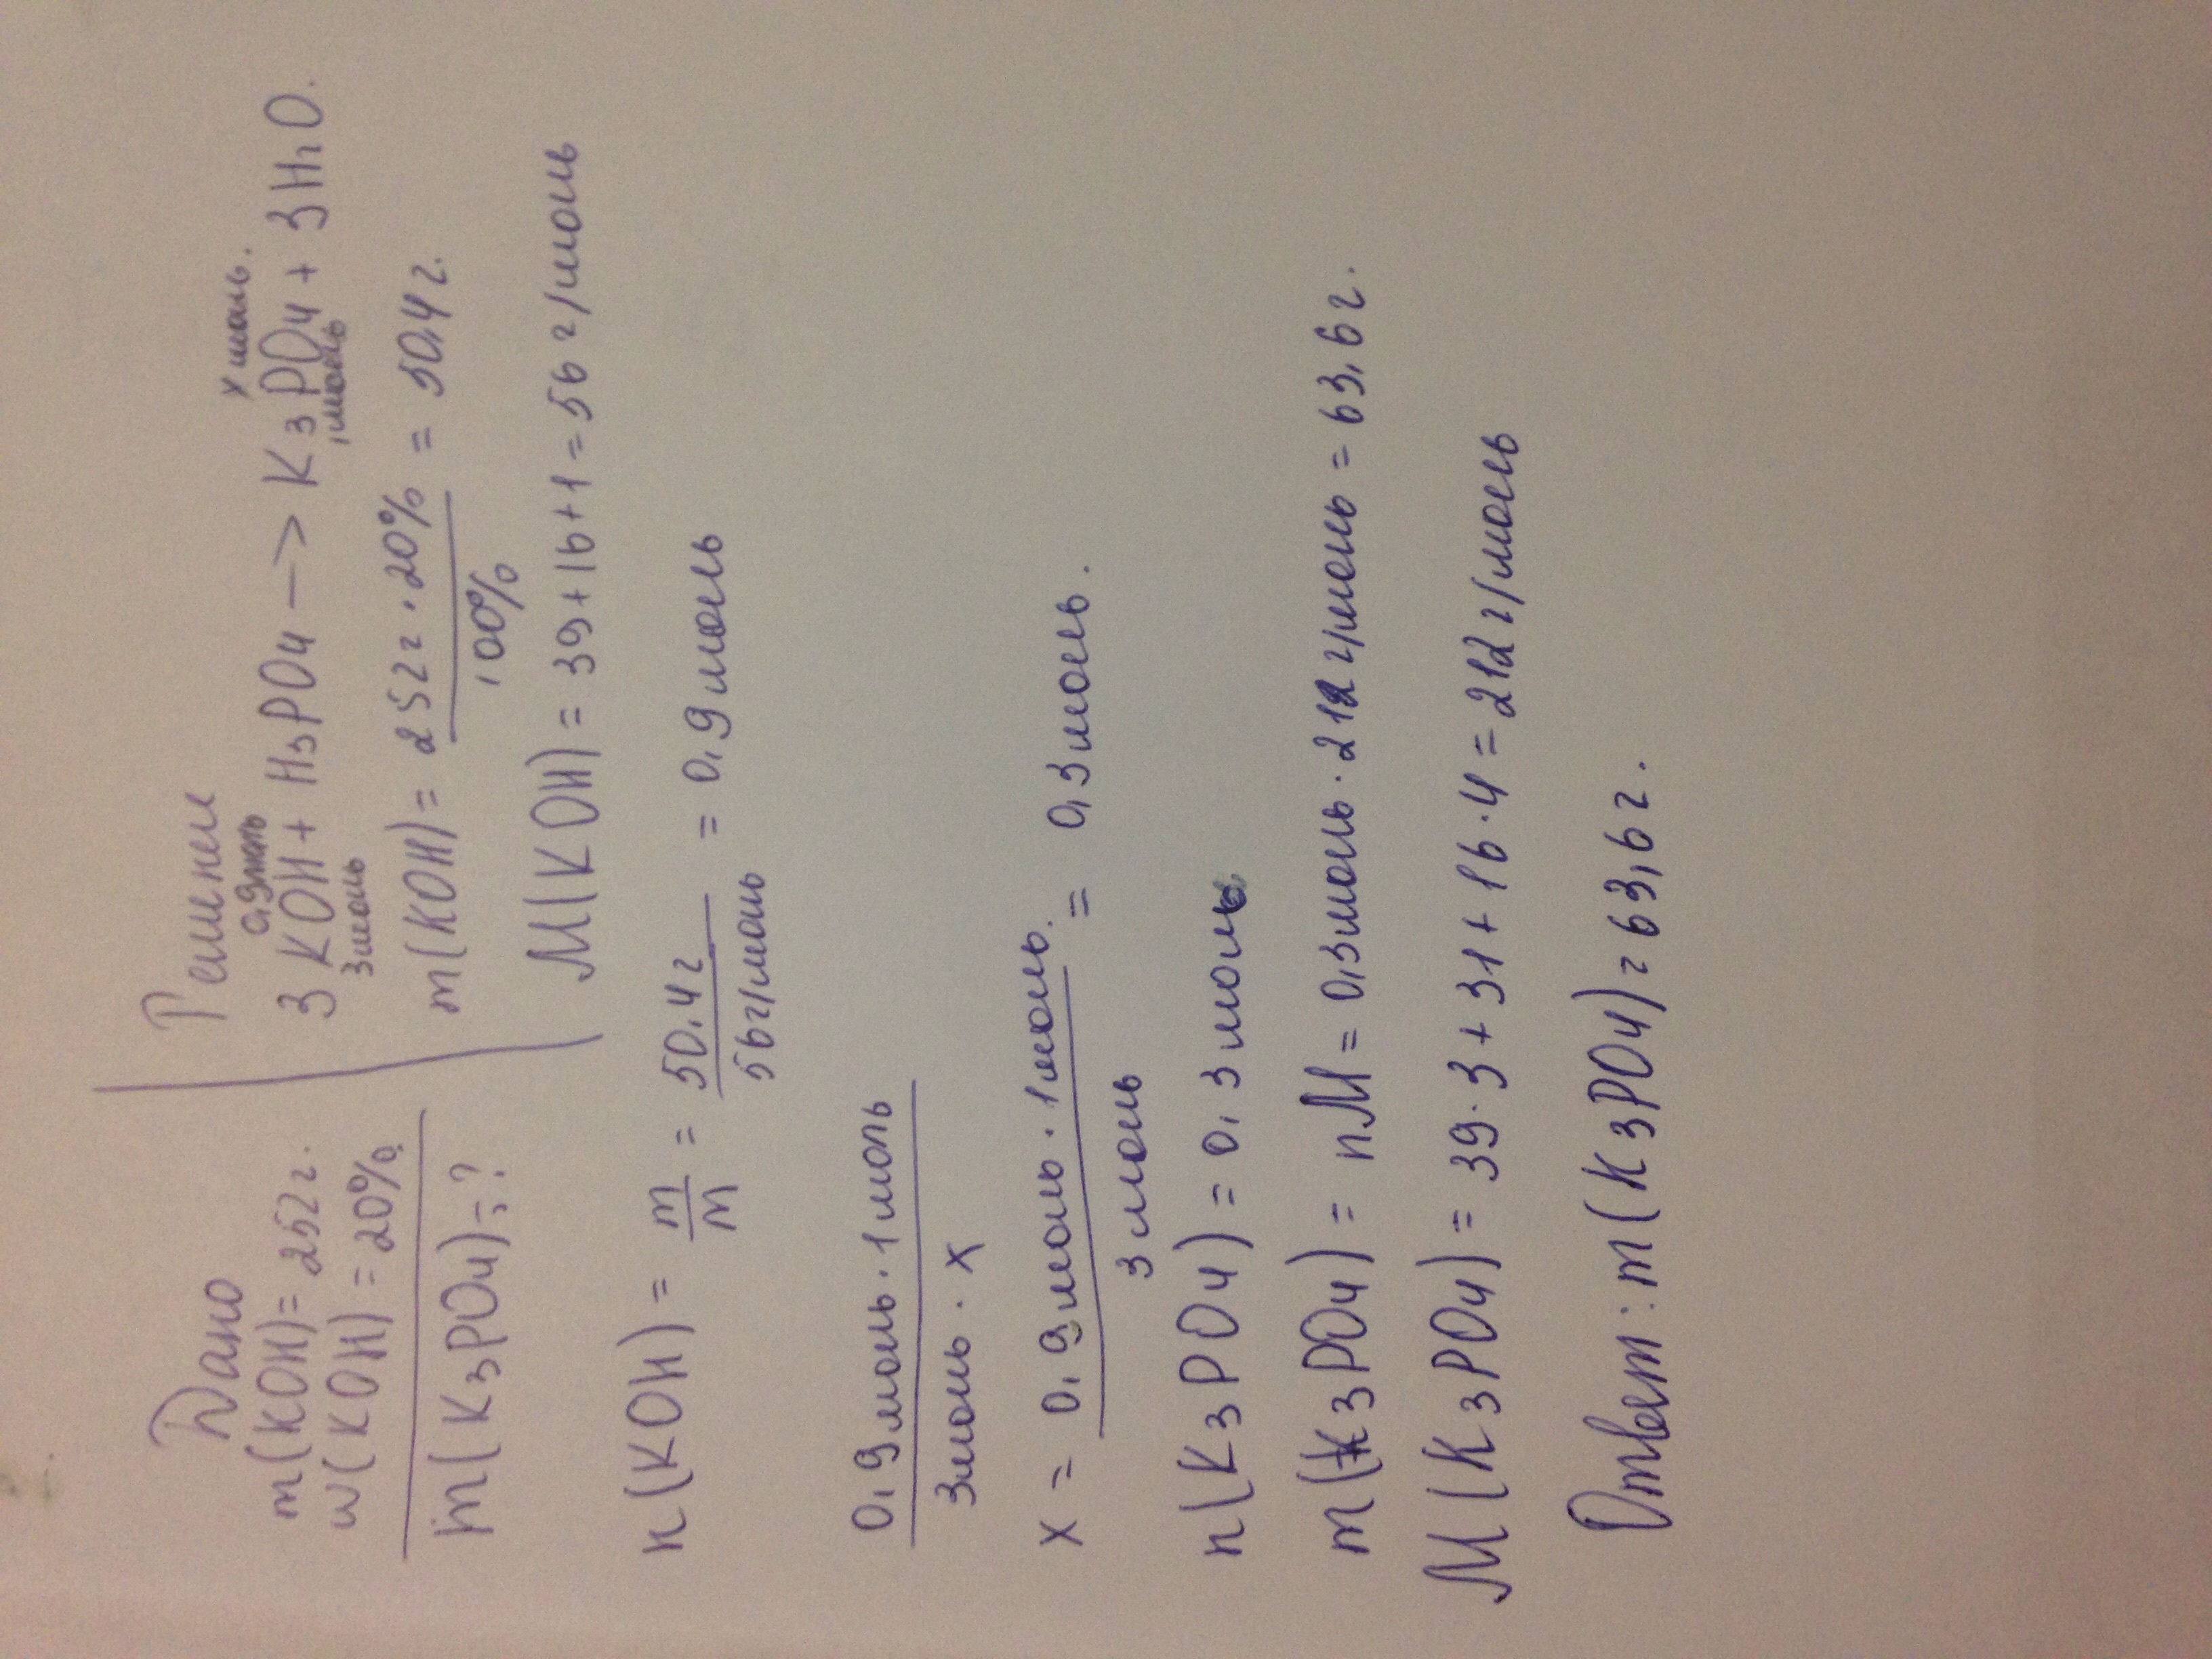 Дано
m(KOH)=252г.
w(KOH)=20%
m(K3PO4)=?
Решение
0,9моль
х моль.
3KOH+H3PO4->K3PO4+3H2O.
3моль
1моль
m(KOH)=252г·20%/100%=50,4г.
M(KOH)=39+16+1=56г/моль
n(KOH)=m/M=50,4г/56г/моль=0,9моль
0,9моль·1моль
3моль·х
x=0,9моль·1моль./3моль=0,3моль.
n(K3PO4)=0,3моль
m(K3PO4)=nM=0,3моль·212г/моль=63,6г.
M(K3PO4)=39·3+31+16·4=212г/моль
Ответ:m(K3PO4)=63,6г.